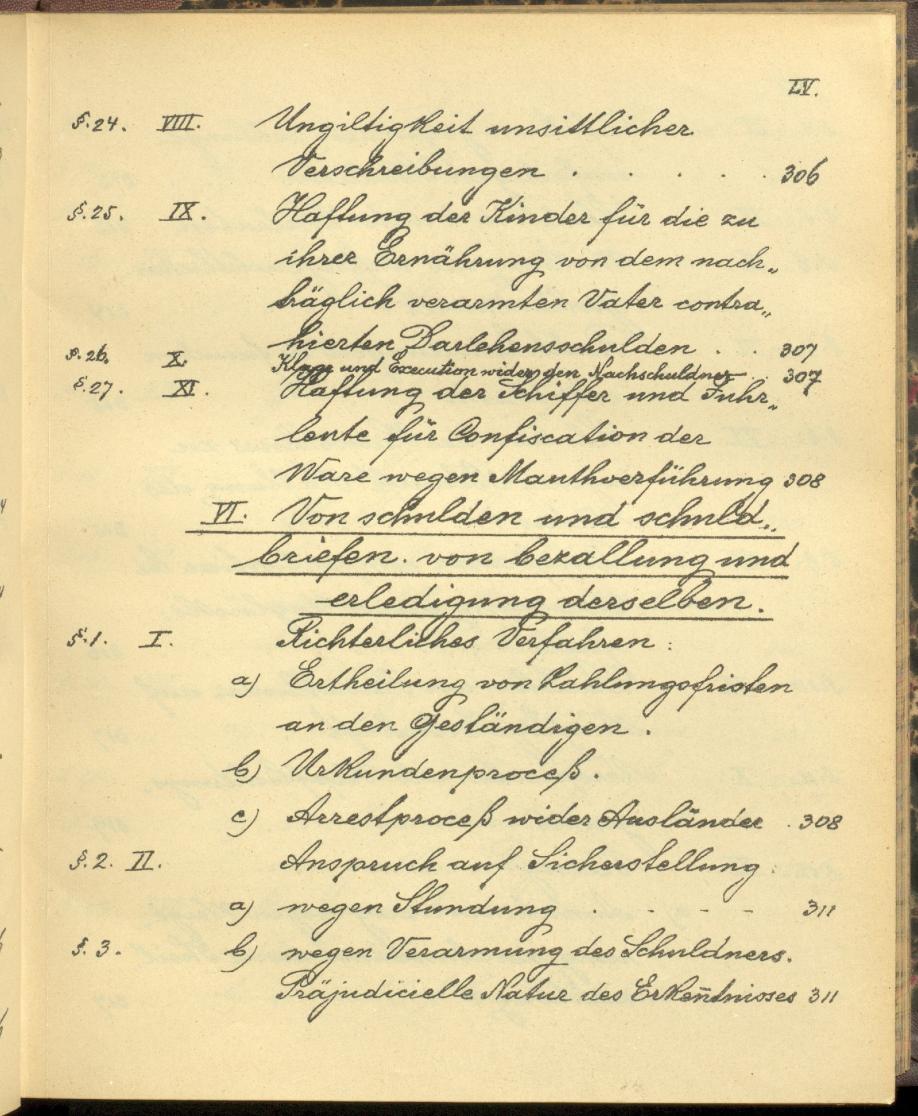 LV.
§. 24. VIII. Ungiltigkeit unsittlicher
Verschreibungen . . . . . 306
§. 25. IX. Haftung der Kinder für die zu
ihrer Ernährung von dem nach„
träglich verarmten Vater contra„
hierten Darlehensschulden . . 307
§. 26. X. Klage und Execution wider den Nachschuldner . . 307
§. 27. XI. Haftung der Schiffer und Fuhr„
leute für Confiscation der
Ware wegen Mauthverführung 308
VI. Von schulden und schuld„
briefen. von bezallung und
erledigung derselben.
§. 1. I. Richterliches Verfahren:
a) Ertheilung von Zahlungsfristen
an den Geständigen.
b) Urkundenproceß.
c) Arrestproceß wider Ausländer . 308
§. 2. II. Anspruch auf Sicherstellung
a) wegen Stundung . - - - 311
§. 3. b) wegen Verarmung des Schuldners.
Präjudicielle Natur des Erkenn̄tnisses 311